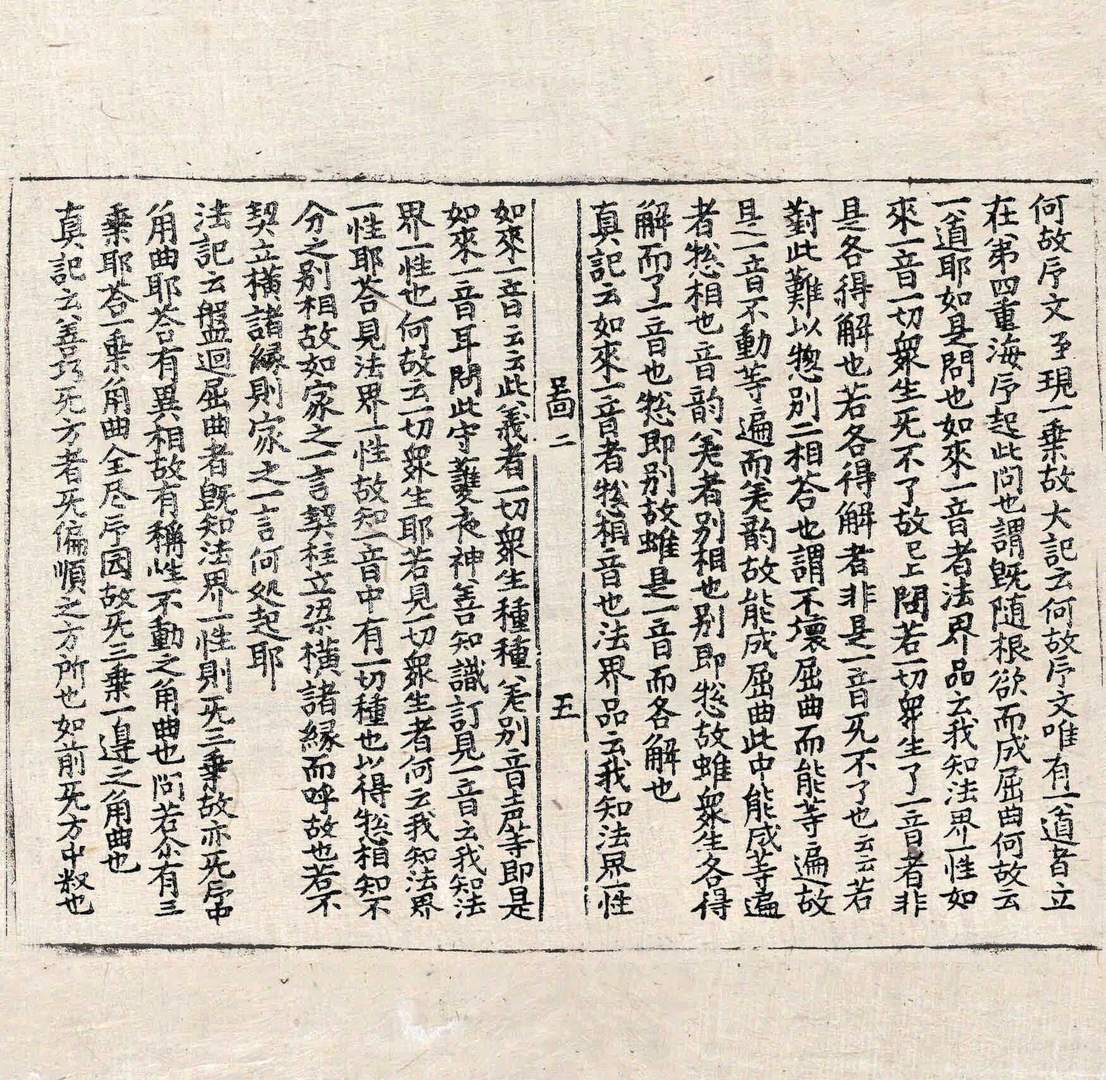 何故序文至現一乗故大記云何故序文唯有一道者立
在第四重海序起此問也謂旣随根欲而成屈曲何故云
一道耶如是問也如來一音者法界品云我知法界一性如
來一音一切衆生无不了故已上問若一切衆生了一音者非
是各得解也若各得解者非是一音无不了也云云若
對此難以惣別二相荅也謂不壞屈曲而能等遍故
是一音不動等遍而差韵故能成屈曲此中能成等遍
者惣相也音韵差者別相也別即惣故雖衆生各得
解而了一音也惣即別故雖是一音而各解也
真記云如來一音者惣相音也法界品云我知法界一性
啚二 五
如來一音云云此義者一切衆生種種差別音声等即是
如來一音耳問此守護夜神善知識訂見一音云我知法
界一性也何故云一切衆生耶若見一切衆生者何云我知法界
一性耶荅見法界一性故知一音中有一切種也以得惣相知不
分之別相故如家之一言契柱立梁横諸縁而呼故也若不
契立横諸縁則家之一言何処起耶
法記云盤迴屈曲者旣知法界一性則无三乗故亦无序中
角曲耶荅有異相故有稱性不動之角曲也問若尒有三
乗耶荅一乗角曲全尽序因故无三乗一邉之角曲也
真記云善巧无方者无偏順之方所也如前无方中叙也